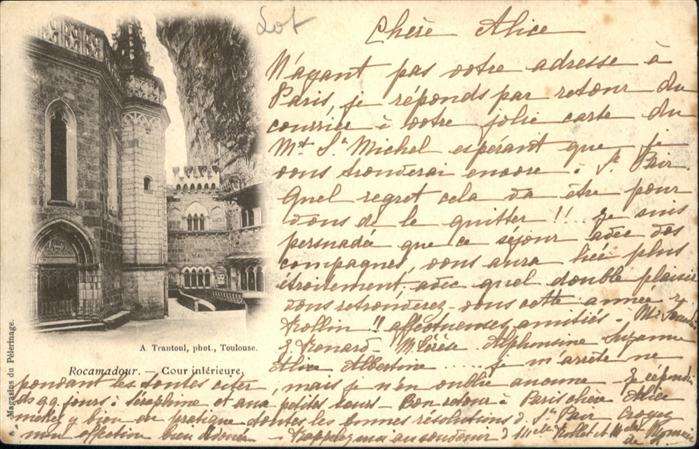 Lot
Chère Alice
N'ayant pas votre adresse à
Paris, je réponds par retour du
courrier à votre jolie carte du
Mt St Michel espérant que je
vous trouverai encore à St Pair
Quel regret cela va être pour
vous de le quitter !! Je suis
persuadée que ce séjour avec vos
compagnes, vous aura liée plus
étroitement, avec quel double plaisir
vous retrouverez vous cette année
Rollin !! affectueuses amitiés
Renard Alphonsine Suzanne
Alice Albertine ..... je m'arrête ne
pouvant les toutes citer, mais je n'en oublie aucune
Séraphine et aux petites sœurs - Bon retour à Paris chère Alice
mettez y bien en pratique toutes les bonnes résolutions de St Pair Croyez
à mon affection bien dévouée - Rappelez moi au souvenir de
A Trantoul, phot., Toulouse.
Rocamadour. — Cour intérieure.
Magasins du Pèlerinage.